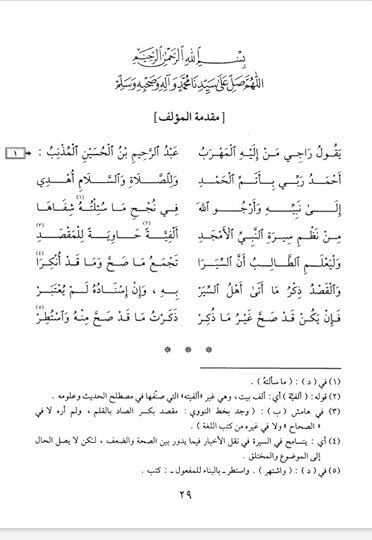 بِسْمِ اللهِ الرَّحْمٰنِ الرَّحِيْمِ
اللّٰهُمَّ صَلِّ عَلَىٰ سَيِّدِنَا مُحَمَّدٍ وَآلِهِ وَصَحْبِهِ وَسَلِّمْ
[ مقدمة المؤلف ]
يَقُولُ رَاجِي مَنْ إِلَيْهِ الْمَهْرَبُ عَبْدُ الرَّحِيمِ بْنُ الْحُسَيْنِ الْمُذْنِبُ : ١
أَحْمَدُ رَبِّي بِأَتَمِّ الْحَمْدِ وَلِلصَّلَاةِ وَالسَّلَامِ أُهْدِي
إِلَىٰ نَبِيِّهِ وَأَرْجُو اللهَ فِي نُجْحِ مَا سُئِلْتُهُ(١) شِفَاهَا
مِنْ نَظْمِ سِيرَةِ النَّبِيِّ الْأَمْجَدِ أَلْفِيَّةً(٢) حَاوِيَةً لِلْمَقْصَدِ(٣)
وَلْيَعْلَمِ الطَّالِبُ أَنَّ السِّيَرَا تَجْمَعُ مَا صَحَّ وَمَا قَدْ أُنْكِرَا(٤)
وَالْقَصْدُ ذِكْرُ مَا أَتَىٰ أَهْلُ السِّيَرْ بِهِ ، وَإِنْ إِسْنَادُهُ لَمْ يُعْتَبَرْ
فَإِنْ يَكُنْ قَدْ صَحَّ غَيْرُ مَا ذُكِرْ ذَكَرْتُ مَا قَدْ صَحَّ مِنْهُ وَاسْتُطِرْ(٥)
* * *
(١) في ( د ) : ( ما سألتهُ ) .
(٢) قوله : ( ألفيّة ) أي : ألف بيت، وهي غير «ألفيته» التي صنّفها في مصطلح الحديث وعلومه .
(٣) في هامش ( ب ) : ( وجد بخط النووي : مقصد بكسر الصاد بالقلم ، ولم أره لا في
« الصحاح » ولا في غيره من كتب اللغة ) .
(٤) أي : يتسامح في السيرة في نقل الأخبار فيما يدور بين الصحة والضعف ، لكن لا يصل الحال
إلى الموضوع والمختلق .
(٥) في ( د ) : ( واشتهر ) . واستطر ـ بالبناء للمفعول ـ : كتب .
٢٩